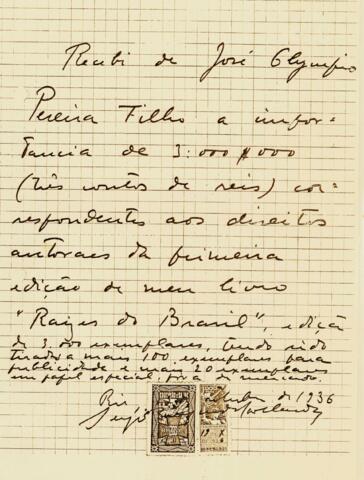 Recebi de José Olympio
Pereira Filho a impor-
tancia de 3:000$000
(três contos de reis) cor-
respondentes aos direitos
autoraes da primeira
edição de meu livro
"Raizes do Brasil", edição
de 3.000 exemplares, tendo sido
tirados mais 100 exemplares para
publicidade e mais 20 exemplares
em papel especial, fóra do mercado.
Rio de 1936
Sergio Hollanda